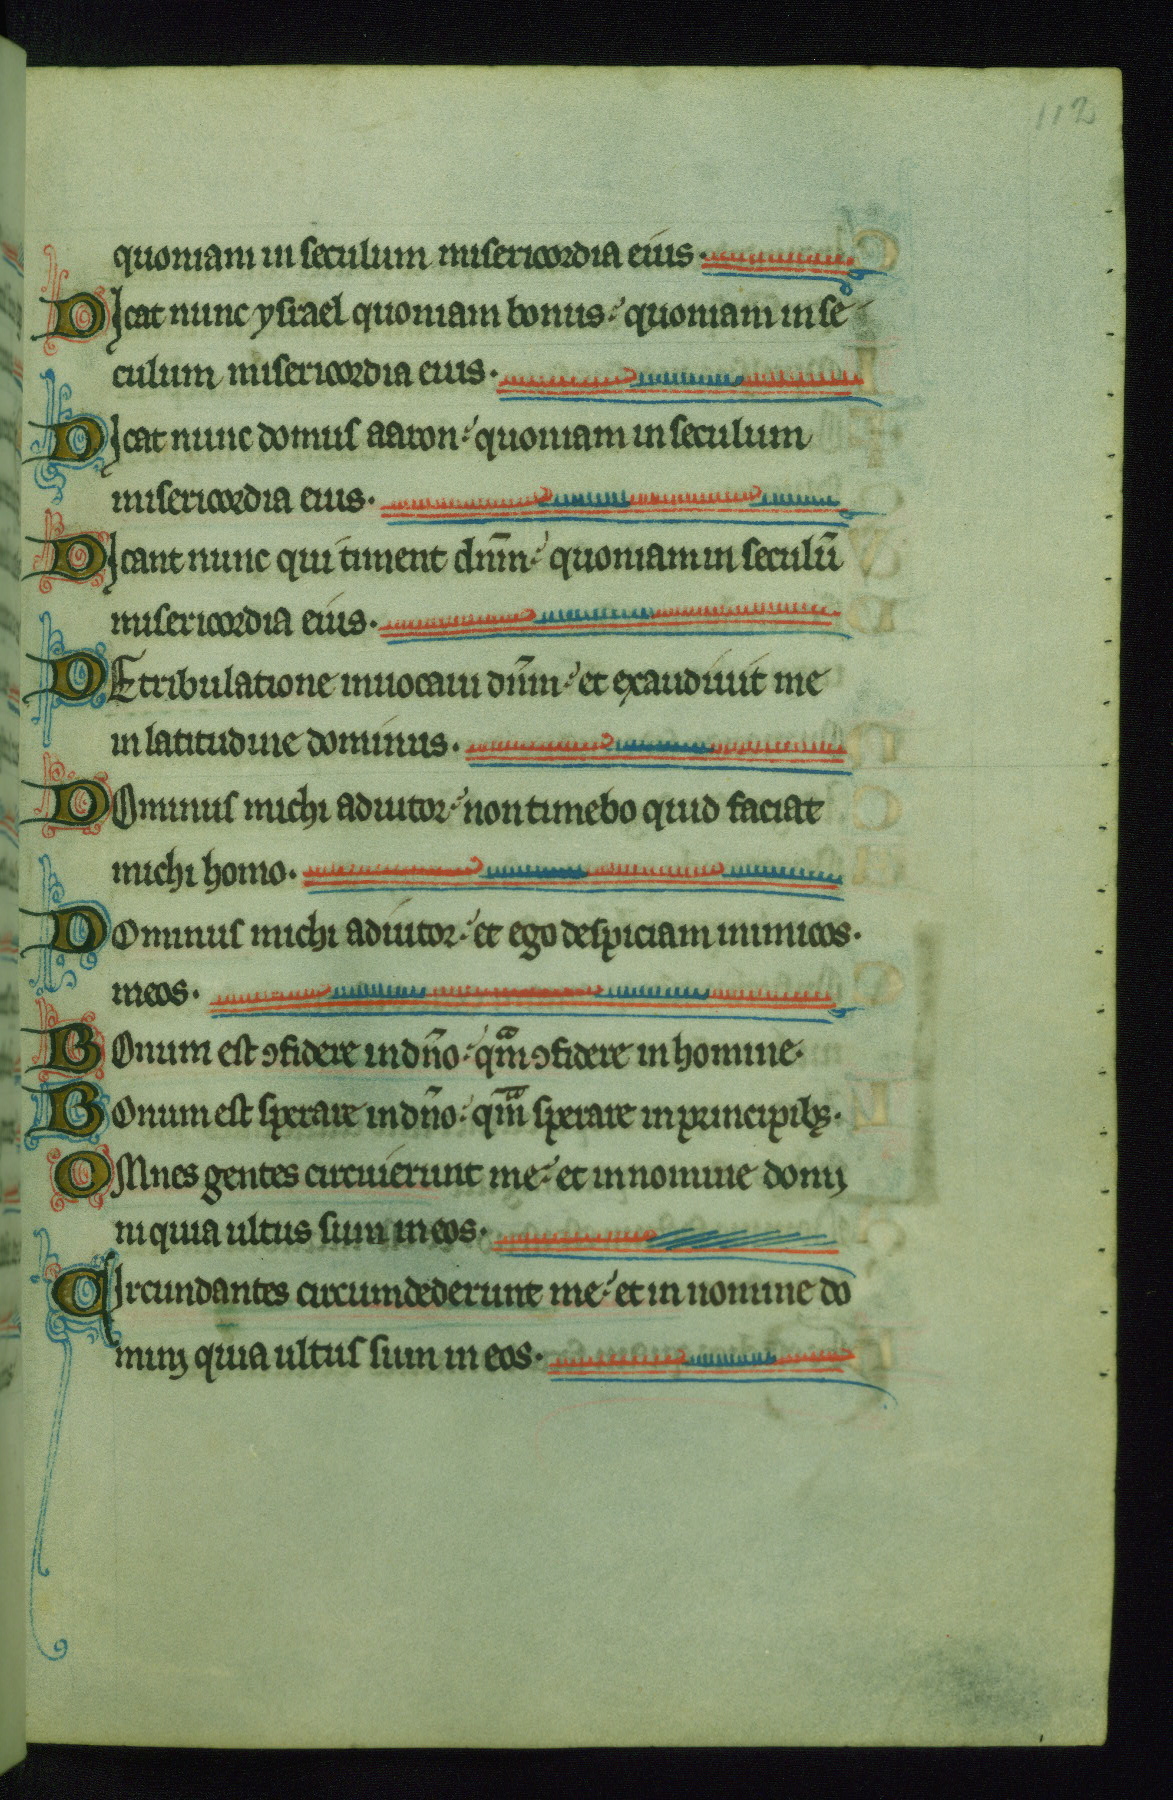 112
quoniam in seculum misericordia eius.
DIcat nunc ysrael quoniam bonus: quoniam in se
culum misericordia eius.
DIcat nunc domus aaron: quoniam in seculum
misericordia eius.
DIcant nunc qui timent dn̄m: quoniam in seculū
misericordia eius.
DE tribulatione inuocaui dn̄m: et exaudiuit me
in latitudine dominus.
DOminus michi adiutor: non timebo quid faciat
michi homo.
DOminus michi adiutor: et ego despiciam inimicos.
meos.
BOnum est ꝯfidere in dn̄o: qᵃ̄m ꝯfidere in homine.
BOnum est sperare in dn̄o: qᵃ̄m sperare in principibꝫ.
OMnes gentes circuierunt me: et in nomine domi
ni quia ultus sum in eos.
CIrcundantes circumdederunt me: et in nomine do
mini quia ultus sum in eos.